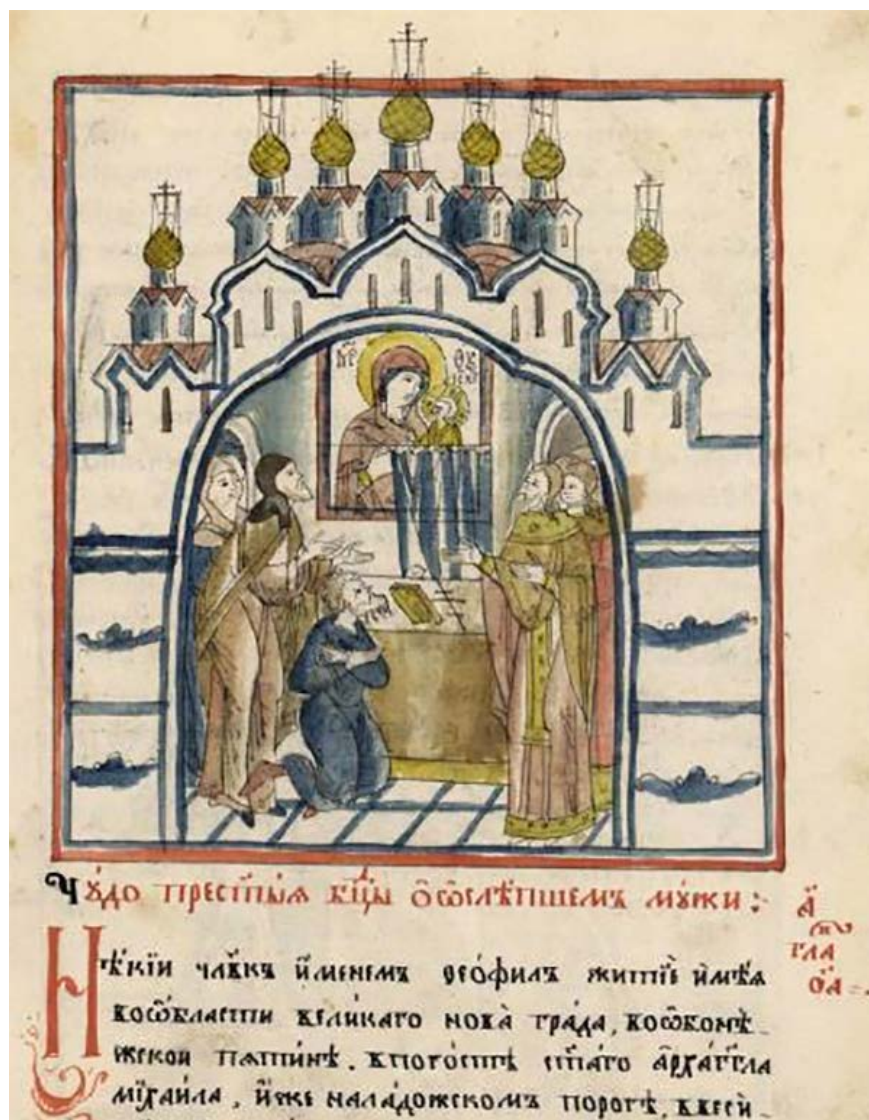 М҃Р Ѳ҃У
Чу́до прест҃ы́ѧ бц҃ы ѻ҆ѡслѣ́пшемъ му́жи :
а҃
гла
Нѣ́кїи чл҃вкъ и҆́менемъ ѳео́филъ житїѐ и҆мѣ́ѧ
воѡ҆́бласти вели́каго но́ва гра́да, воѡ҆бонѣ́
жскои пѧти́нѣ. впого́стѣ ст҃а́го а҆рха́гг҃ла
мїха́ила, и҆́же нала́дожскомъ поро́гѣ, вве́си